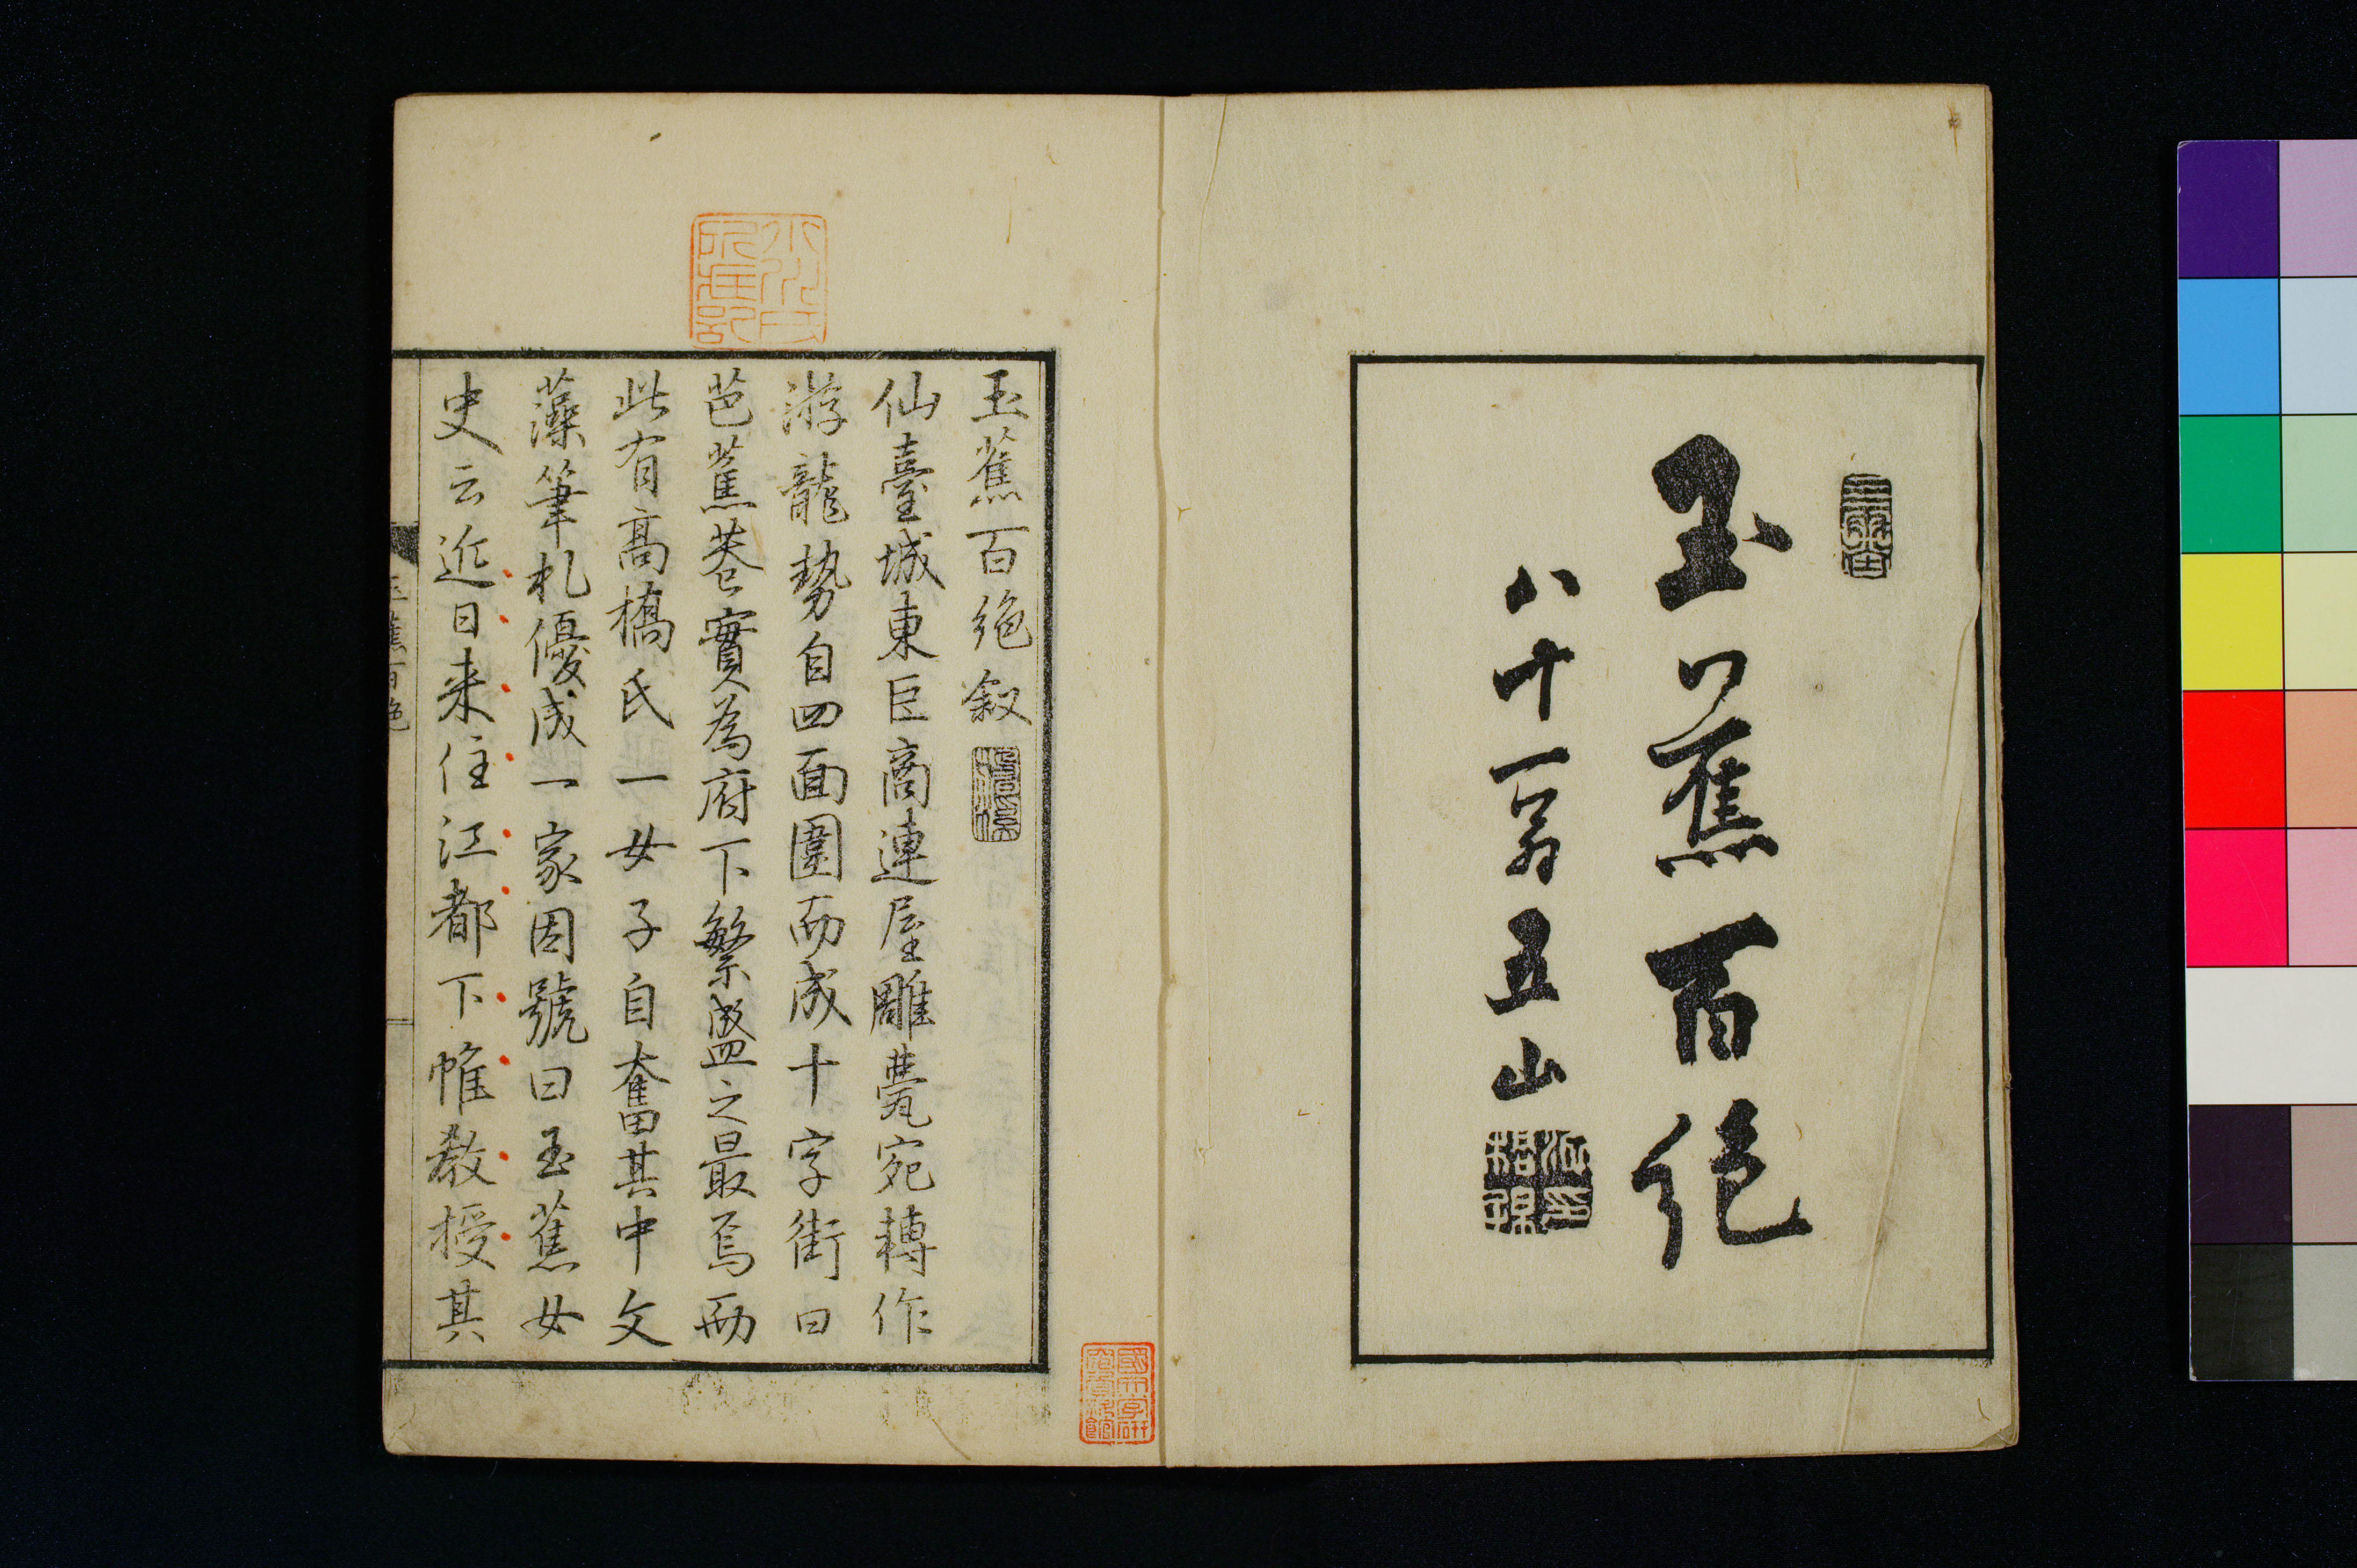 玉蕉百絶
八十一翁五山
玉蕉百絶叙
仙臺城東巨商連屋雕甍宛轉作
游龍勢自四面圍而成十字街曰
芭蕉巷實為府下繁盛之最焉而
此有高橋氏一女子自奮其中文
藻筆札優成一家因號曰玉蕉女
史云近日来住江都下帷教授其
玉蕉百絶